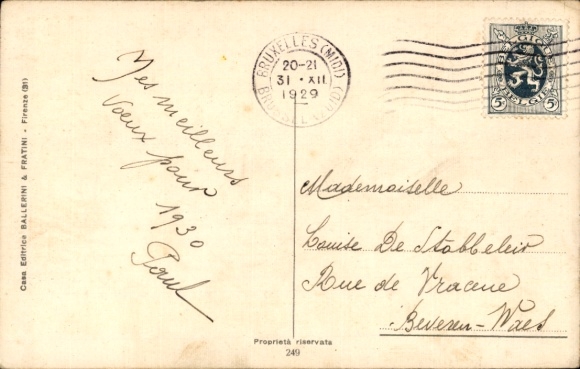 Casa Editrice BALLERINI & FRATINI - Firenze (31)
Mes meilleurs
Voeux pour
1930
Paul
BRUXELLES (MIDI)
20-21
31 · XII
1929
BRUSSEL (ZUID)
BELGIQUE
5c 5c
BELGIË
Mademoiselle
Louise De Stobbeleir
Rue de Vracene
Beveren-Waes
Proprietà riservata
249